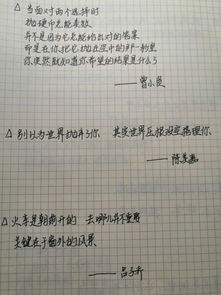 △ 当面对两个选择时
抛硬币总能奏效
并不是因为它总能给出对的结果
而是在你把它抛在空中的那一秒里
你突然就知道你希望的结果是什么了
——曾小贤
△ 别以为世界抛弃了你 其实世界压根没空搭理你
——陈美嘉
△ 火车是朝南开的 去哪儿并不重要
关键在于窗外的风景
——吕子乔